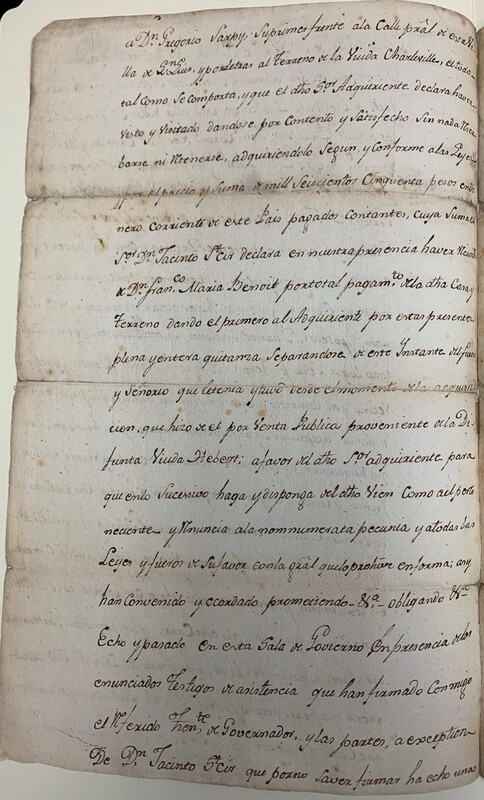 a Dn Gregorio Sarpy, Su primer frente ala Calle prâl de esta Vi
lla de Sn Luis, y por detras al Terreno de la Viuda Charleville, el todo
tal Como Se Comporta, y que el dho Sor Adquiriente declara haver
Visto y Visitado dandose por Contento y Satisfecho Sin nada
barse ni Retenerse, adquiriendolo Segun, y Conforme alas Leyes
por el precio y Suma de mill Seiscientos Cinquenta pesos en di
nero Corriente de este Pais pagados Contantes, Cuya Suma el
Sor Dn Jacinto St Cir declara en nuestra presencia haver
de Dn Franco Maria Benoit por total pagamto de la dha Casa y
Terreno dando el primero al Adquiriente por estas presente
plena y entera quitanza Separandose de este Instante del fuero
y Señorio que letenia y tuvô desde el momento de la acquari
cion, que hizo de el por Venta Publica proveniente de la Di
funta Viuda Hebert; a favor del dho Sor adquiriente para
que en lo Sucessivo haga y disponga del dho Vien Como a el perte
neciente y Rnuncia ala nonnumerata pecunia y atodas las
Leyes y fueros de Su favor con la grâl que lo prohive en forma; asy
han Convenido y acordado prometiendo &a obligando &a
Echo y pasado en esta Sala de Govierno En presencia de los
enunciados Testigos de asistencia que han firmado Conmigo
el Rferido Thente de Governador, y las partes, a exception
De Dn Jacinto St Cir que por no Saver firmar ha echo una